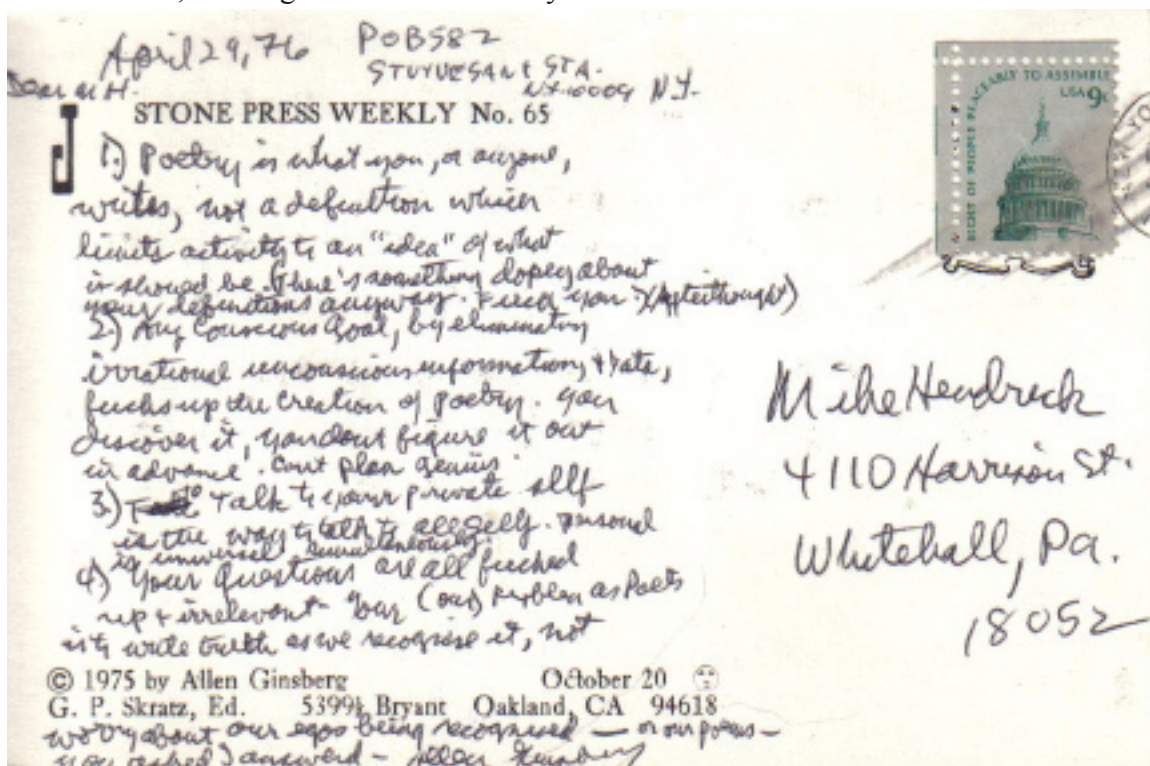 April 29, 76
POB 582
STUYVESANT STA.
N.Y. 10009 N.Y.
Dear M H.
STONE PRESS WEEKLY No. 65
1.) Poetry is what you, or anyone,
writes, not a definition which
limits activity to an "idea" of what
it should be. (There's something dopey about
your definitions anyway. Fuck you.) (Afterthought)
2.) Any Conscious Goal, by eliminating
irrational unconscious information, & data,
fucks up the Creation of Poetry. You
discover it, you dont figure it out
in advance. Cant plan genius.
3.) To Talk to your private self
is the way to talk to all self. Personal
is universal simultaneously.
4) Your Questions are all fucked
up & irrelevant - Your (our) problem as Poets
is to write truth as we recognise it, not
© 1975 by Allen Ginsberg October 20
G. P. Skratz, Ed. 5399½ Bryant Oakland, CA 94618
worry about our egos being recognised — or our poems —
you asked I answerd — Allen Ginsberg
RIGHT OF PEOPLE PEACEABLY TO ASSEMBLE
USA 9c
Mike Hendrick
4110 Harrison St.
Whitehall, Pa.
18052